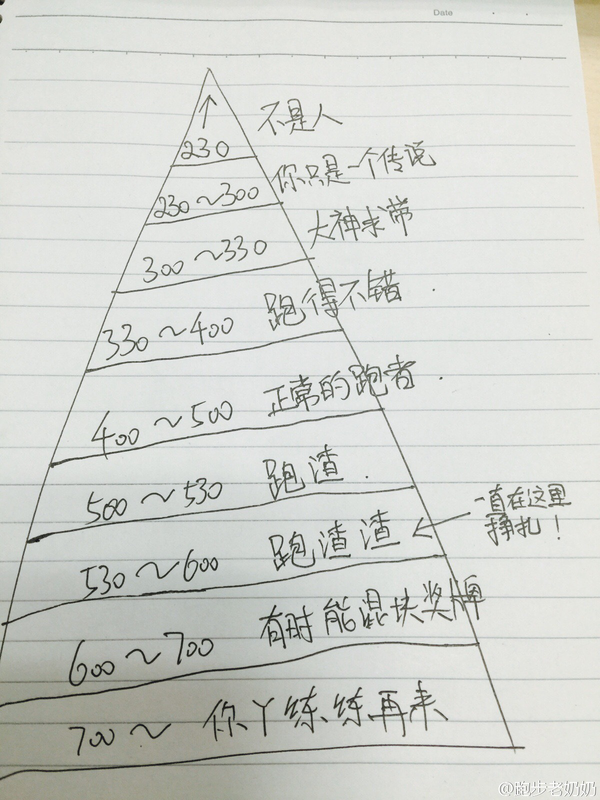 Date
不是人
230
230~300 你只是一个传说
300~330 大神求带
330~400 跑得不错.
400~500 正常的跑者.
500~530 跑渣.
530~600 跑渣渣
一直在这里
挣扎!
600~700 有时能混块奖牌
700~ 你丫练练再来
@跑步老奶奶